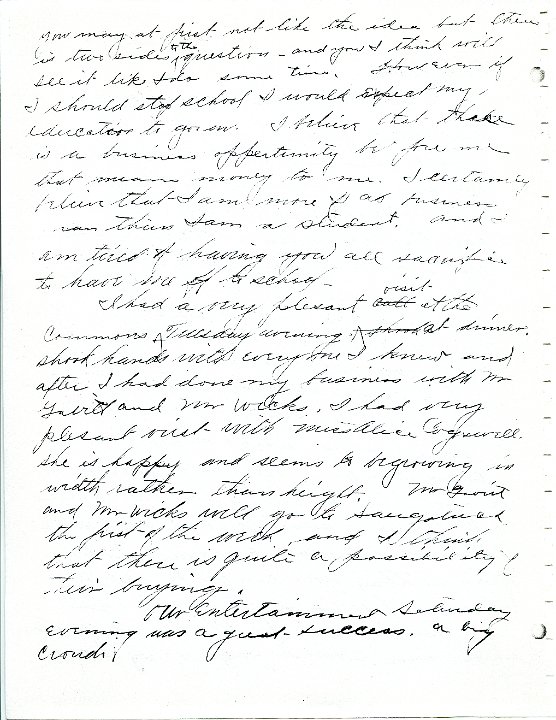 you may at first not like the idea but there
is two sides to the question - and you I think will
see it like I do some time. However if
I should stop school I would expect my
education to go on. I believe that there
is a business opportunity before me
that means money to me. I certainly
believe that I am more of a business
man then I am a student. and I
am tired of having you all sacrifice
to have me go to school -
I had a very plesent call visit at the
Commons Tuesday evening at dinner.
shook hands with every one I knew and
after I had done my business with Mr
and Mr Wicks. I had very
plesent visit with Miss Alice Cogswell.
she is happy and seems to be growing in
width rather than height. Mr
and Mr Wicks will go to Saugatuck
the first of the week, and I think
that there is quite a possibility of
their buying.
Our Entertainment Saturday
evening was a great success. a big
crowd.